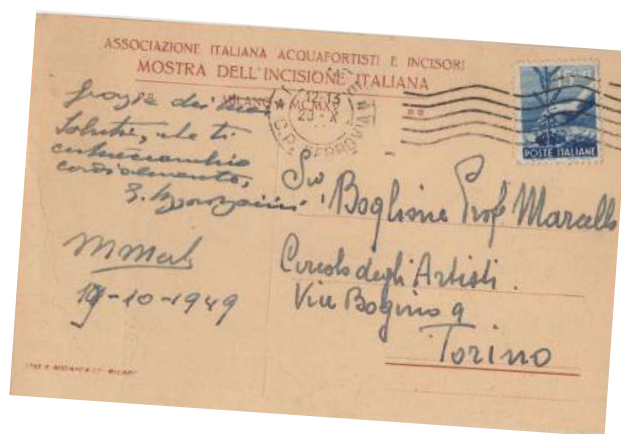 ASSOCIAZIONE ITALIANA ACQUAFORTISTI E INCISORI
MOSTRA DELL'INCISIONE ITALIANA
MILANO MCMXX
12-13
20-X
C.P. FERROVIA
POSTE ITALIANE
Grazie dei
Saluti, che ti
contraccambio
cordialmente,
-10-1949
Boglione Prof Marcello
Circolo degli Artisti.
Via Bogino 9
Torino